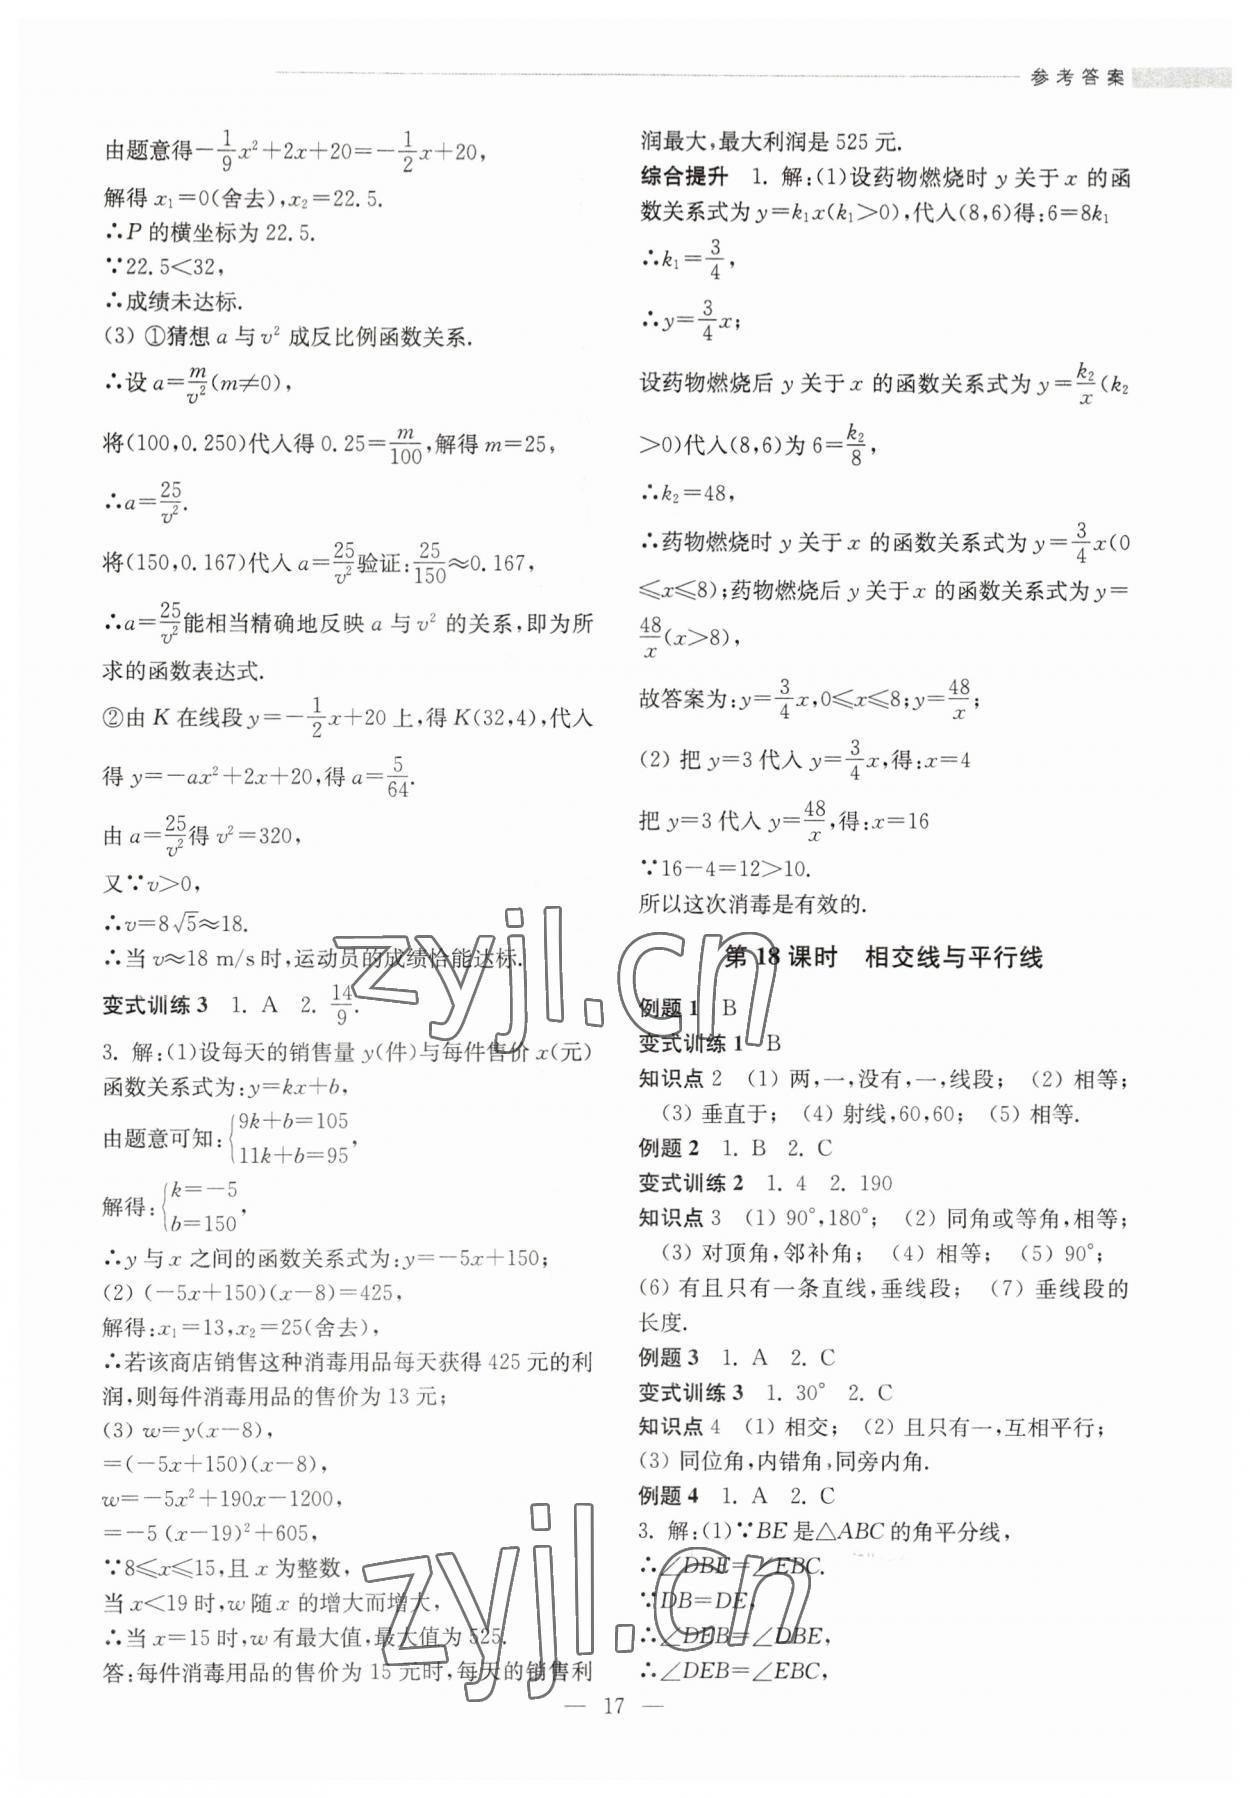 参考答案
由题意得-\frac{1}{9}x²+2x+20=-\frac{1}{2}x+20,
解得 x₁=0(舍去),x₂=22.5.
∴P 的横坐标为 22.5.
∵22.5<32,
∴成绩未达标.
(3) ①猜想 a 与 v² 成反比例函数关系.
∴设 a=\frac{m}{v²}(m≠0),
将(100,0.250)代入得 0.25=\frac{m}{100},解得 m=25,
∴a=\frac{25}{v²}.
将(150,0.167)代入 a=\frac{25}{v²}验证:\frac{25}{150}≈0.167,
∴a=\frac{25}{v²}能相当精确地反映 a 与 v² 的关系,即为所
求的函数表达式.
②由 K 在线段 y=-\frac{1}{2}x+20 上,得 K(32,4),代入
得 y=-ax²+2x+20,得 a=\frac{5}{64}.
由 a=\frac{25}{v²}得 v²=320,
又∵v>0,
∴v=8√5≈18.
∴当 v≈18 m/s 时,运动员的成绩恰能达标.
变式训练 3 1. A 2. \frac{14}{9}.
3. 解:(1)设每天的销售量 y(件)与每件售价 x(元)
函数关系式为:y=kx+b,
由题意可知:{9k+b=105
11k+b=95,
解得:{k=-5
b=150,
∴y 与 x 之间的函数关系式为:y=-5x+150;
(2) (-5x+150)(x-8)=425,
解得:x₁=13,x₂=25(舍去),
∴若该商店销售这种消毒用品每天获得 425 元的利
润,则每件消毒用品的售价为 13 元;
(3) w=y(x-8),
=(-5x+150)(x-8),
w=-5x²+190x-1200,
=-5 (x-19)²+605,
∵8≤x≤15,且 x 为整数,
当 x<19 时,w 随 x 的增大而增大,
∴当 x=15 时,w 有最大值,最大值为 525.
答:每件消毒用品的售价为 15 元时,每天的销售利
润最大,最大利润是 525 元.
综合提升 1. 解:(1)设药物燃烧时 y 关于 x 的函
数关系式为 y=k₁x(k₁>0),代入(8,6)得:6=8k₁
∴k₁=\frac{3}{4},
∴y=\frac{3}{4}x;
设药物燃烧后 y 关于 x 的函数关系式为 y=\frac{k₂}{x}(k₂
>0)代入(8,6)为 6=\frac{k₂}{8},
∴k₂=48,
∴药物燃烧时 y 关于 x 的函数关系式为 y=\frac{3}{4}x(0
≤x≤8);药物燃烧后 y 关于 x 的函数关系式为 y=
\frac{48}{x}(x>8),
故答案为:y=\frac{3}{4}x,0≤x≤8;y=\frac{48}{x};
(2) 把 y=3 代入 y=\frac{3}{4}x,得:x=4
把 y=3 代入 y=\frac{48}{x},得:x=16
∵16-4=12>10.
所以这次消毒是有效的.
第 18 课时 相交线与平行线
例题 1 B
变式训练 1 B
知识点 2 (1) 两,一,没有,一,线段; (2) 相等;
(3) 垂直于; (4) 射线,60,60; (5) 相等.
例题 2 1. B 2. C
变式训练 2 1. 4 2. 190
知识点 3 (1) 90°,180°; (2) 同角或等角,相等;
(3) 对顶角,邻补角; (4) 相等; (5) 90°;
(6) 有且只有一条直线,垂线段; (7) 垂线段的
长度.
例题 3 1. A 2. C
变式训练 3 1. 30° 2. C
知识点 4 (1) 相交; (2) 且只有一,互相平行;
(3) 同位角,内错角,同旁内角.
例题 4 1. A 2. C
3. 解:(1)∵BE 是△ABC 的角平分线,
∴∠DBE=∠EBC.
∵DB=DE,
∴∠DEB=∠DBE,
∴∠DEB=∠EBC,
— 17 —
zyjl.cn
zyjl.cn